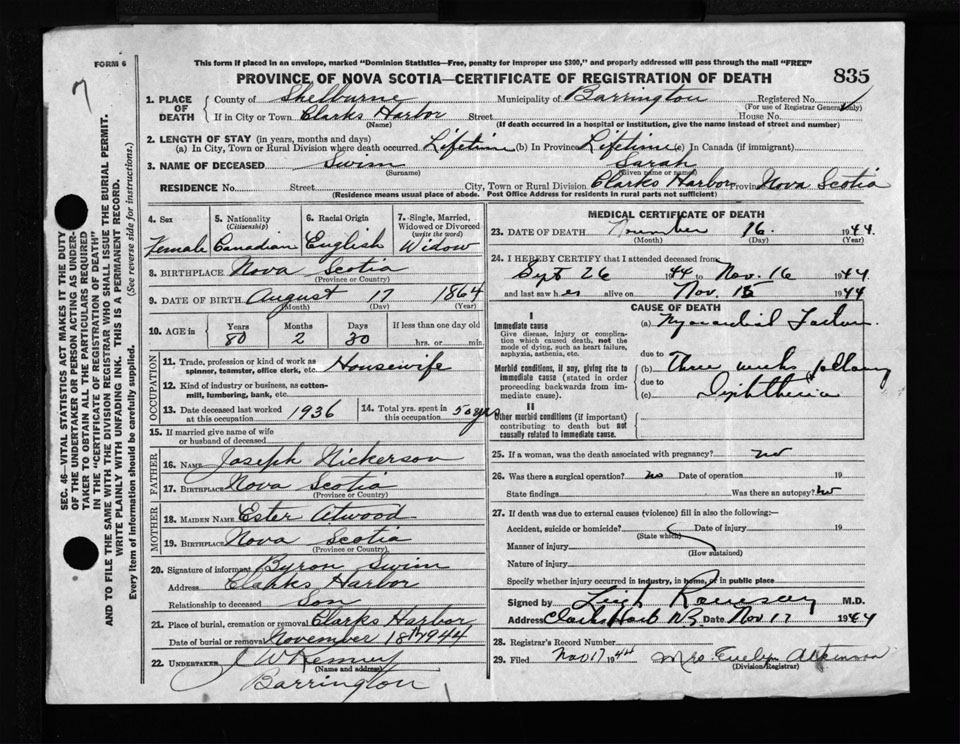 7
FORM 6
This form if placed in an envelope, marked "Dominion Statistics—Free, penalty for improper use $300," and properly addressed will pass through the mail "FREE"
PROVINCE OF NOVA SCOTIA—CERTIFICATE OF REGISTRATION OF DEATH 835
1. PLACE OF DEATH
County of Shelburne Municipality of Barrington Registered No.
(For use of Registrar General only)
If in City or Town Clarks Harbor Street House No.
(Name) (If death occurred in a hospital or institution, give the name instead of street and number)
2. LENGTH OF STAY (in years, months and days)
(a) In City, Town or Rural Division where death occurred. Lifetime (b) In Province Lifetime (c) In Canada (if immigrant)
3. NAME OF DECEASED Swim Sarah
(Surname) (Given name or names)
RESIDENCE No. Street City, Town or Rural Division Clarks Harbor Province Nova Scotia
(Residence means usual place of abode. Post Office Address for residents in rural parts not sufficient)
4. Sex Female
5. Nationality (Citizenship) Canadian
6. Racial Origin English
7. Single, Married, Widowed or Divorced (write the word) Widow
8. BIRTHPLACE Nova Scotia
(Province or Country)
9. DATE OF BIRTH August 17 1864
(Month) (Day) (Year)
10. AGE in Years Months Days If less than one day old
80 2 30 hrs. or min.
OCCUPATION
11. Trade, profession or kind of work as spinner, teamster, office clerk, etc. Housewife
12. Kind of industry or business, as cotton-mill, lumbering, bank, etc.
13. Date deceased last worked at this occupation 1936
14. Total yrs. spent in this occupation 50 yrs
15. If married give name of wife or husband of deceased
FATHER
16. NAME Joseph Nickerson
17. BIRTHPLACE Nova Scotia
(Province or Country)
MOTHER
18. MAIDEN NAME Ester Atwood
19. BIRTHPLACE Nova Scotia
(Province or Country)
20. Signature of informant Byron Swim
Address Clarks Harbor
Relationship to deceased Son
21. Place of burial, cremation or removal Clarks Harbor
Date of burial or removal November 18th 1944
22. UNDERTAKER
(Name and address)
Barrington
MEDICAL CERTIFICATE OF DEATH
23. DATE OF DEATH November 16. 1944.
(Month) (Day) (Year)
24. I HEREBY CERTIFY that I attended deceased from
Sept 26 1944 to Nov. 16 1944
and last saw her alive on Nov. 15 1944
CAUSE OF DEATH
I
Immediate cause
Give disease, injury or complication which caused death, not the mode of dying, such as heart failure, asphyxia, asthenia, etc.
(a) Myocardial Failure.
due to
Morbid conditions, if any, giving rise to immediate cause (stated in order proceeding backwards from immediate cause).
(b) Three weeks following
due to
(c) Diphtheria
II
Other morbid conditions (if important) contributing to death but not causally related to immediate cause.
25. If a woman, was the death associated with pregnancy? no
26. Was there a surgical operation? no Date of operation 19
State findings Was there an autopsy? no
27. If death was due to external causes (violence) fill in also the following:—
Accident, suicide or homicide? Date of injury 19
(State which)
Manner of injury
(How sustained)
Nature of injury
Specify whether injury occurred in industry, in home, or in public place
Signed by Leigh Ramsay M.D.
Address Clarks Harb N.S. Date Nov 17 1944
28. Registrar's Record Number
29. Filed Nov 17 1944 Mrs. Evelyn Atkinson
(Division Registrar)
SEC. 46—VITAL STATISTICS ACT MAKES IT THE DUTY
OF THE UNDERTAKER OR PERSON ACTING AS UNDER-
TAKER TO OBTAIN ALL THE PARTICULARS REQUIRED
IN THE "CERTIFICATE OF REGISTRATION OF DEATH"
AND TO FILE THE SAME WITH THE DIVISION REGISTRAR WHO SHALL ISSUE THE BURIAL PERMIT.
WRITE PLAINLY WITH UNFADING INK. THIS IS A PERMANENT RECORD.
Every item of information should be carefully supplied. (See reverse side for instructions.)